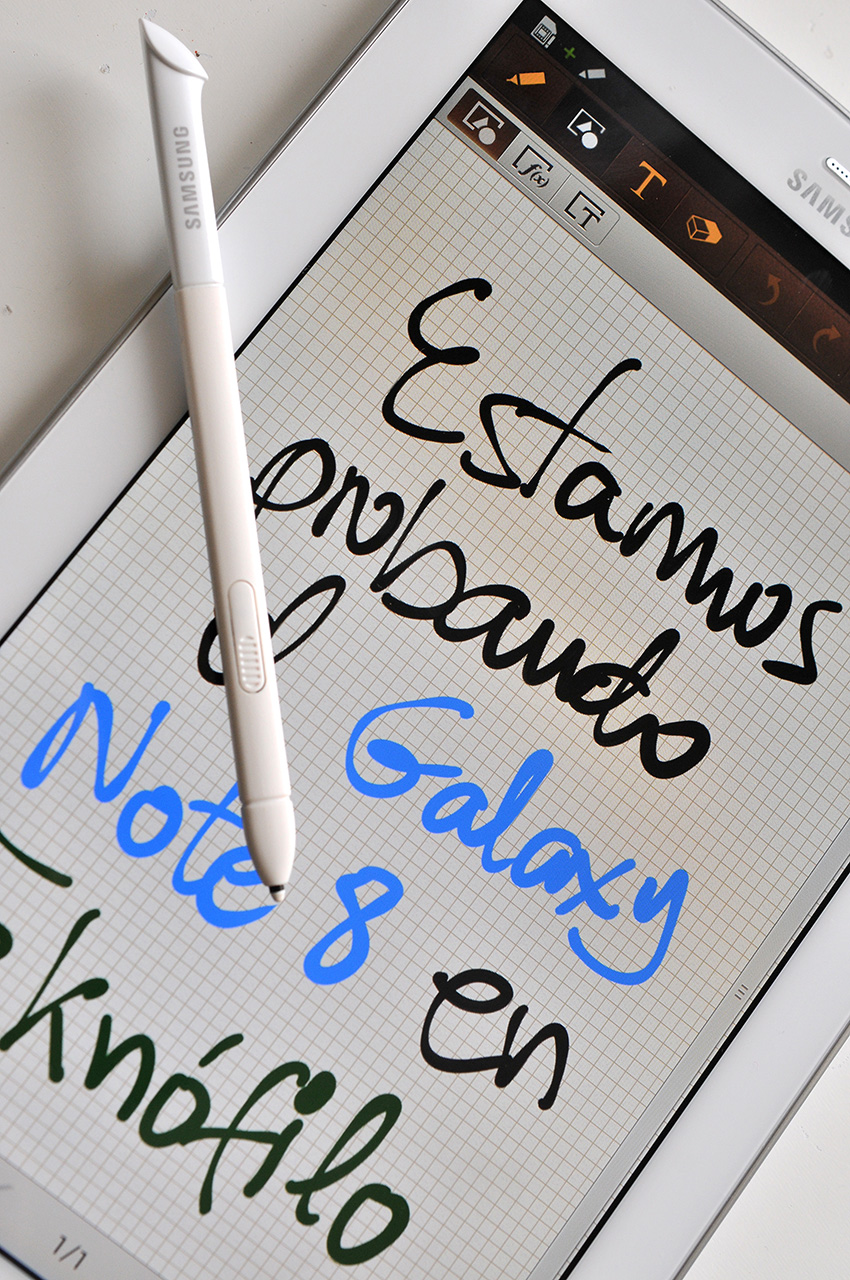 SAMSUNG
SAMS
T
f(x)
T
Estamos
probando
el Galaxy
Note 8 en
knófilo
1/1